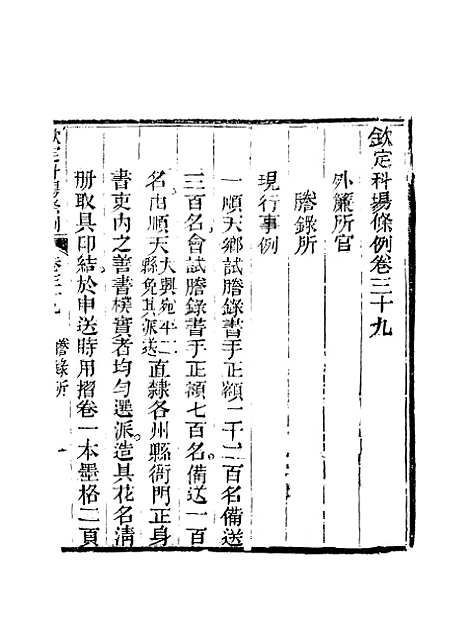 欽定科塲條例卷三十九
外簾所官
謄錄所
現行事例
一順天鄉試謄錄書手正額一千二百名備送
三百名會試謄錄書手正額七百名備送一百
名由順天大興宛平二縣免其派送直隸各州縣衙門正身
書吏內之善書樸實者均勻選派造具花名清
册取具印結於申送時用摺卷一本墨格二頁
欽定科塲條例 卷三十九 謄錄所 一